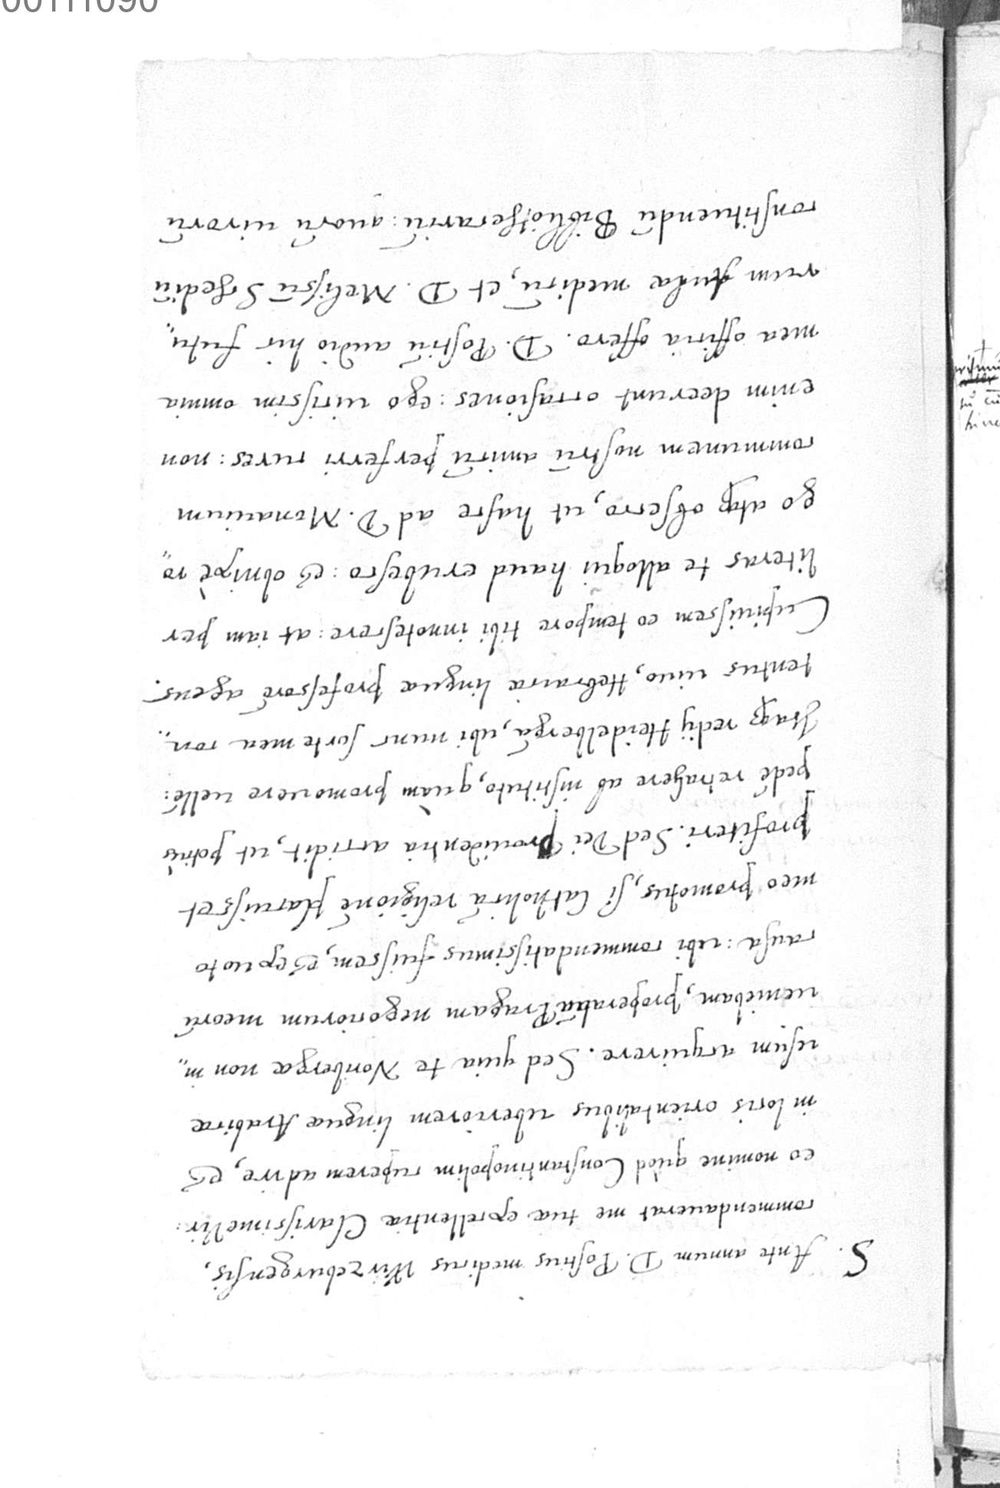 00111090
S. Ante annum D. Postius medicus Wirzeburgensis,
commendauerat me tuæ excellentiæ Clarissime Vir:
eo nomine quòd Constantinopolim cuperem adire, &
in locis orientalibus uberiorem linguæ Arabicæ
usum acquirere. Sed quia te Noribergæ non in„
ueniebam, properabã Pragam negociorum meorũ
causa: ubi commendatissimus fuissem, & ex uoto
meo promotus, si Catholicã religionẽ placuisset
profiteri. Sed Dei Prouidentia arridit, ut potiùs
pedẽ retrahere ab instituto, quàm promouere uellẽ:
Itaq redij Heidelbergã, ubi nunc sorte mea con„
tentus uiuo, Hebraicæ linguæ professorẽ agens.
Cupiuissem eo tempore tibi innotescere: at iam per
literas te alloqui haud erubesco: & obnixè ro„
go atq obsecro, ut hasce ad D. Monauium
communem nostrũ amicũ perferri cures: non
enim deerunt occasiones: ego uicissim omnia
mea officia offero. D. Postiũ audio hic futu„
rum Aulæ medicũ, et D. Melissũ Schediũ
constituendũ Bibliothecariũ: quorũ uirorũ